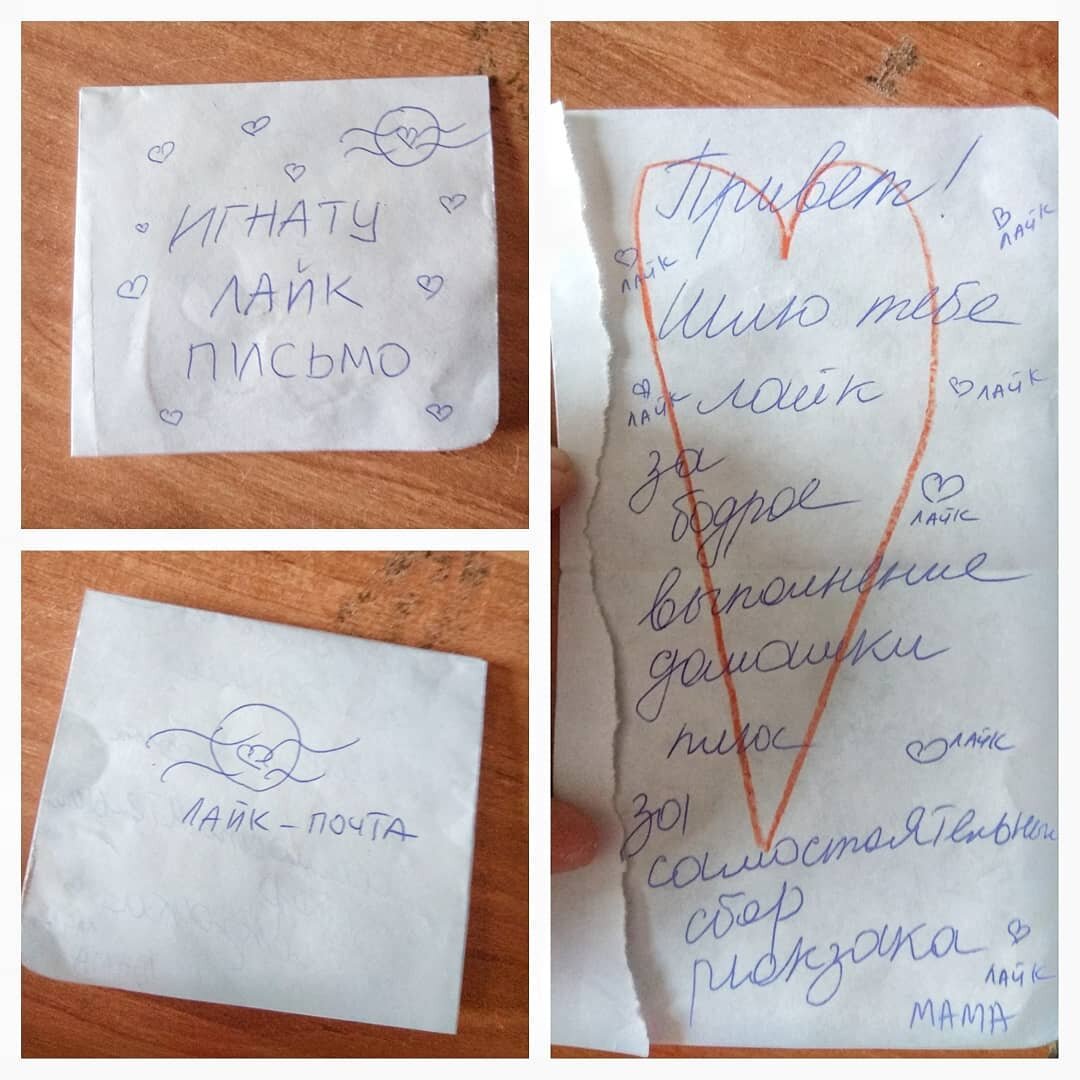 ИГНАТУ
ЛАЙК
ПИСЬМО
ЛАЙК-ПОЧТА
Привет!
ЛАЙК
ЛАЙК
Шлю тебе
ЛАЙК лайк ЛАЙК
за
бодрое
ЛАЙК
выполнение
домашки
плюс ЛАЙК
за
самостоятельный
сбор
рюкзака
ЛАЙК
МАМА